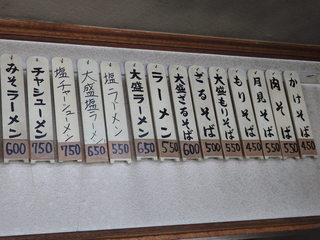 かけそば 450
肉そば 550
月見そば 500
もりそば 450
大盛もりそば 550
ざるそば 500
大盛ざるそば 600
ラーメン 550
大盛ラーメン 650
塩ラーメン 550
大盛塩ラーメン 650
塩チャーシューメン 750
チャシューメン 750
みそラーメン 600